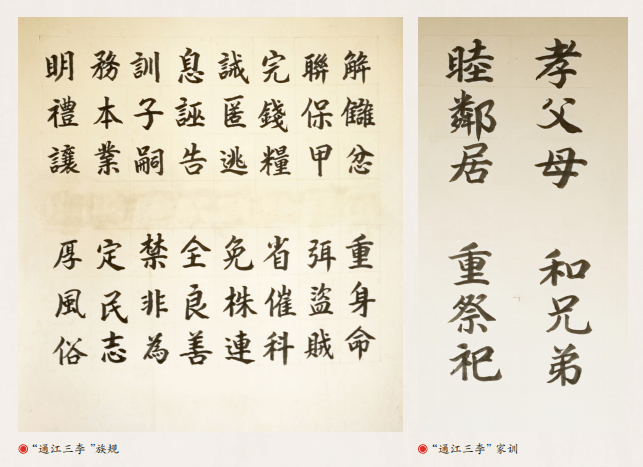 解讎忿 重身命
聯保甲 弭盜賊
完錢糧 省催科
誡匿逃 免株連
息誣告 全良善
訓子嗣 禁非為
務本業 定民志
明禮讓 厚風俗
“通江三李 ”族规
孝父母 和兄弟
睦鄰居 重祭祀
“通江三李”家训